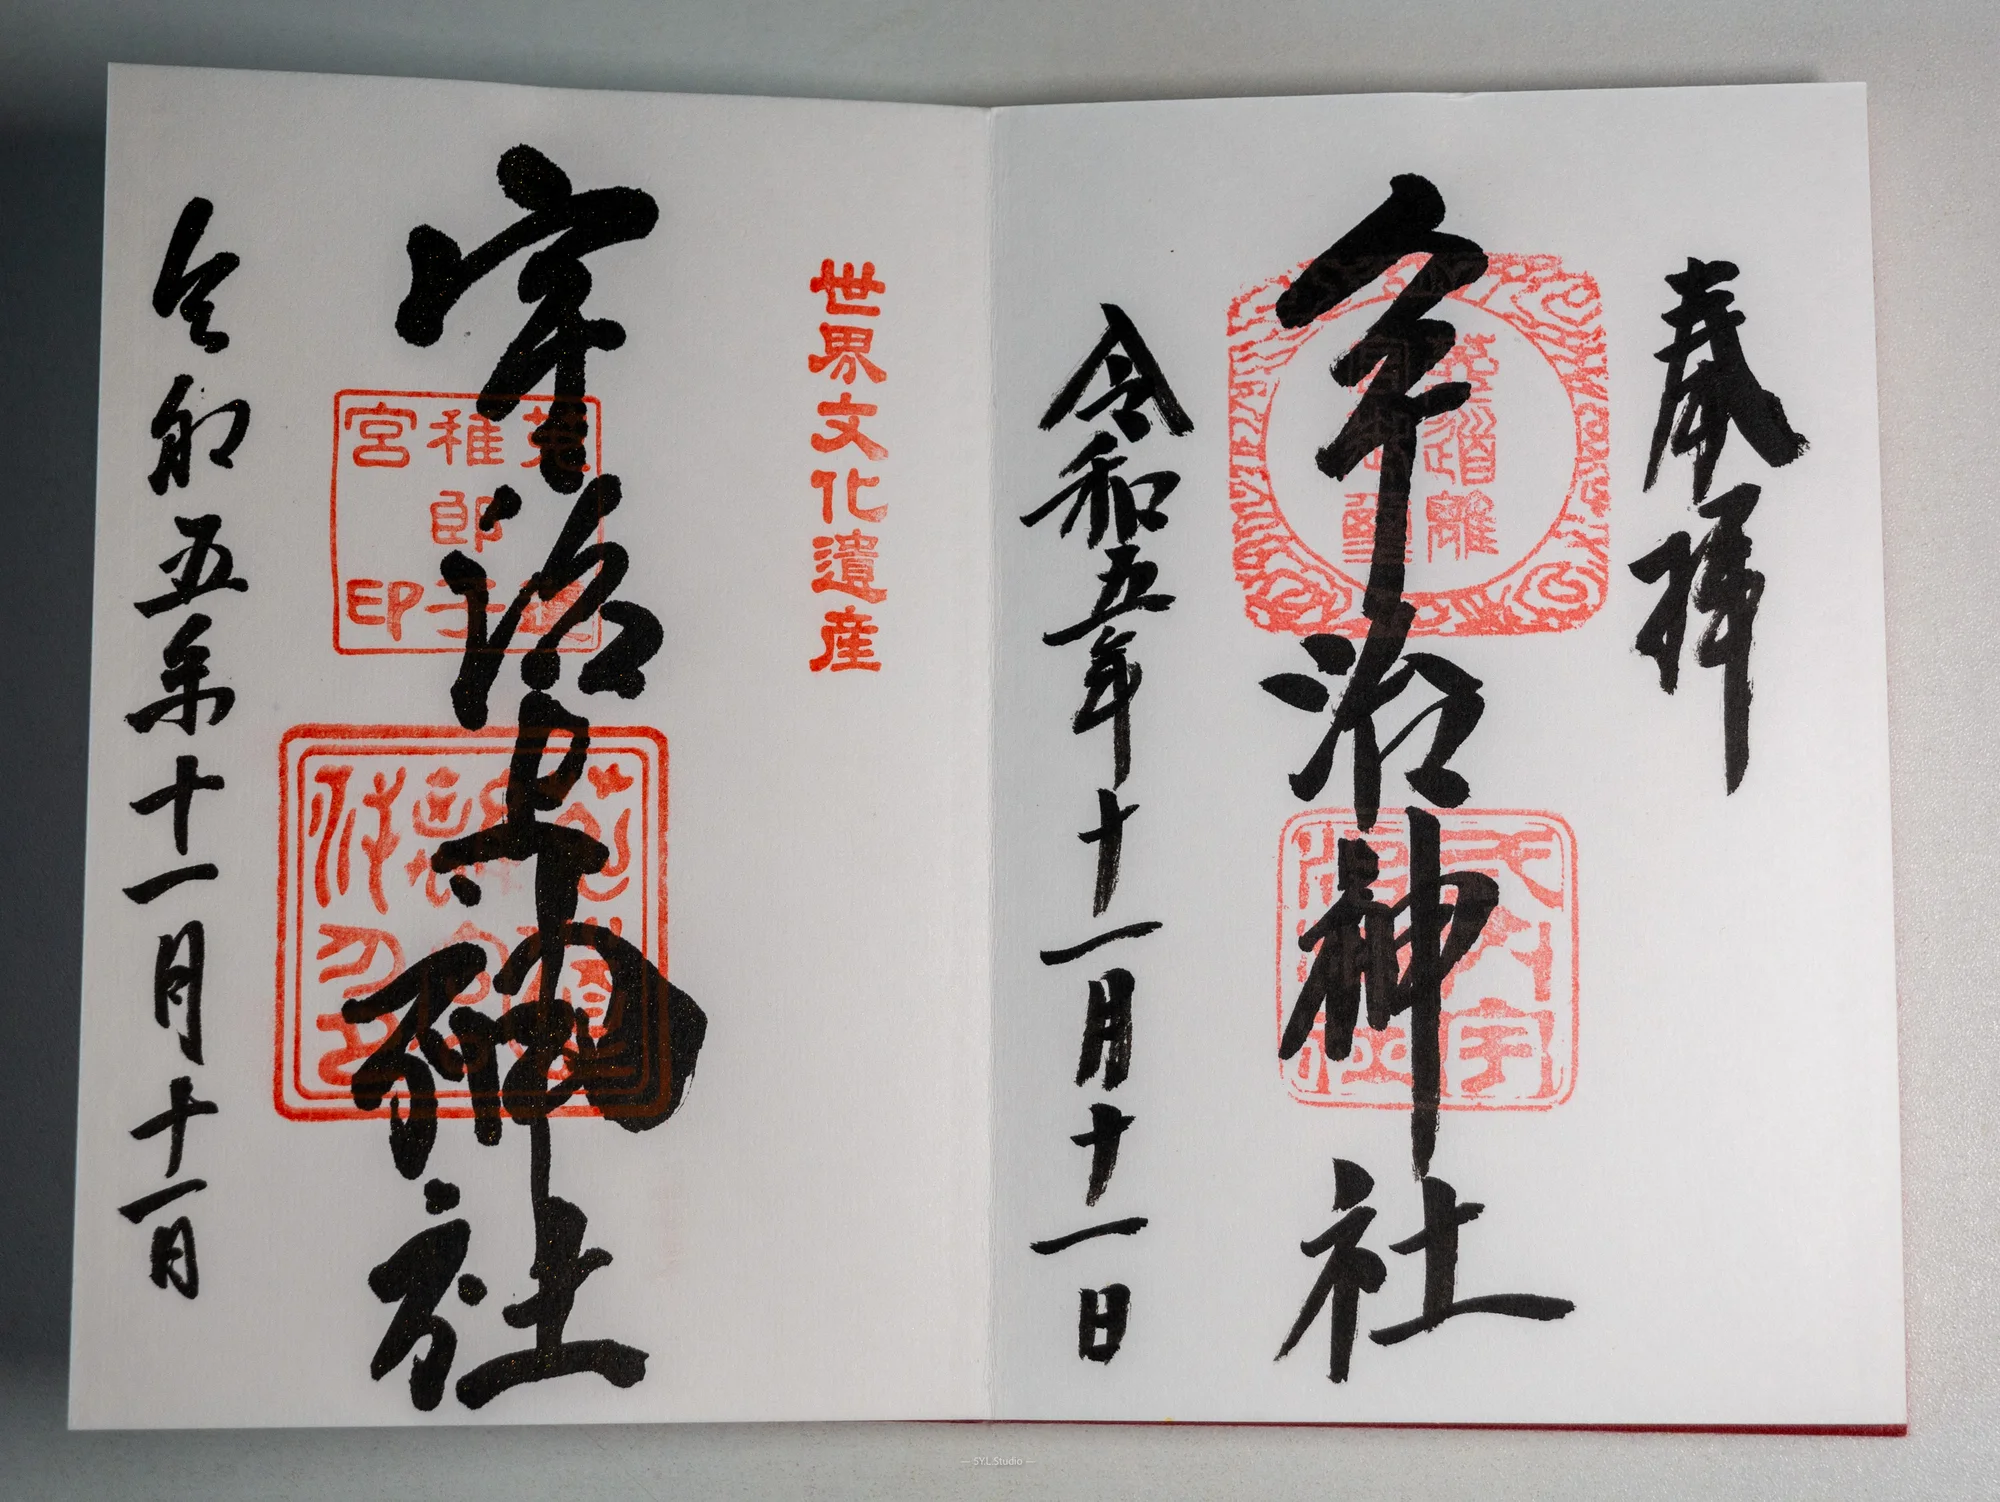 奉拝
宇治神社
菟道離
令和五年十一月十一日
世界文化遺産
宇治上神社
菟道
稚郎子
宮印
令和五年十一月十一日
— SYL Studio —